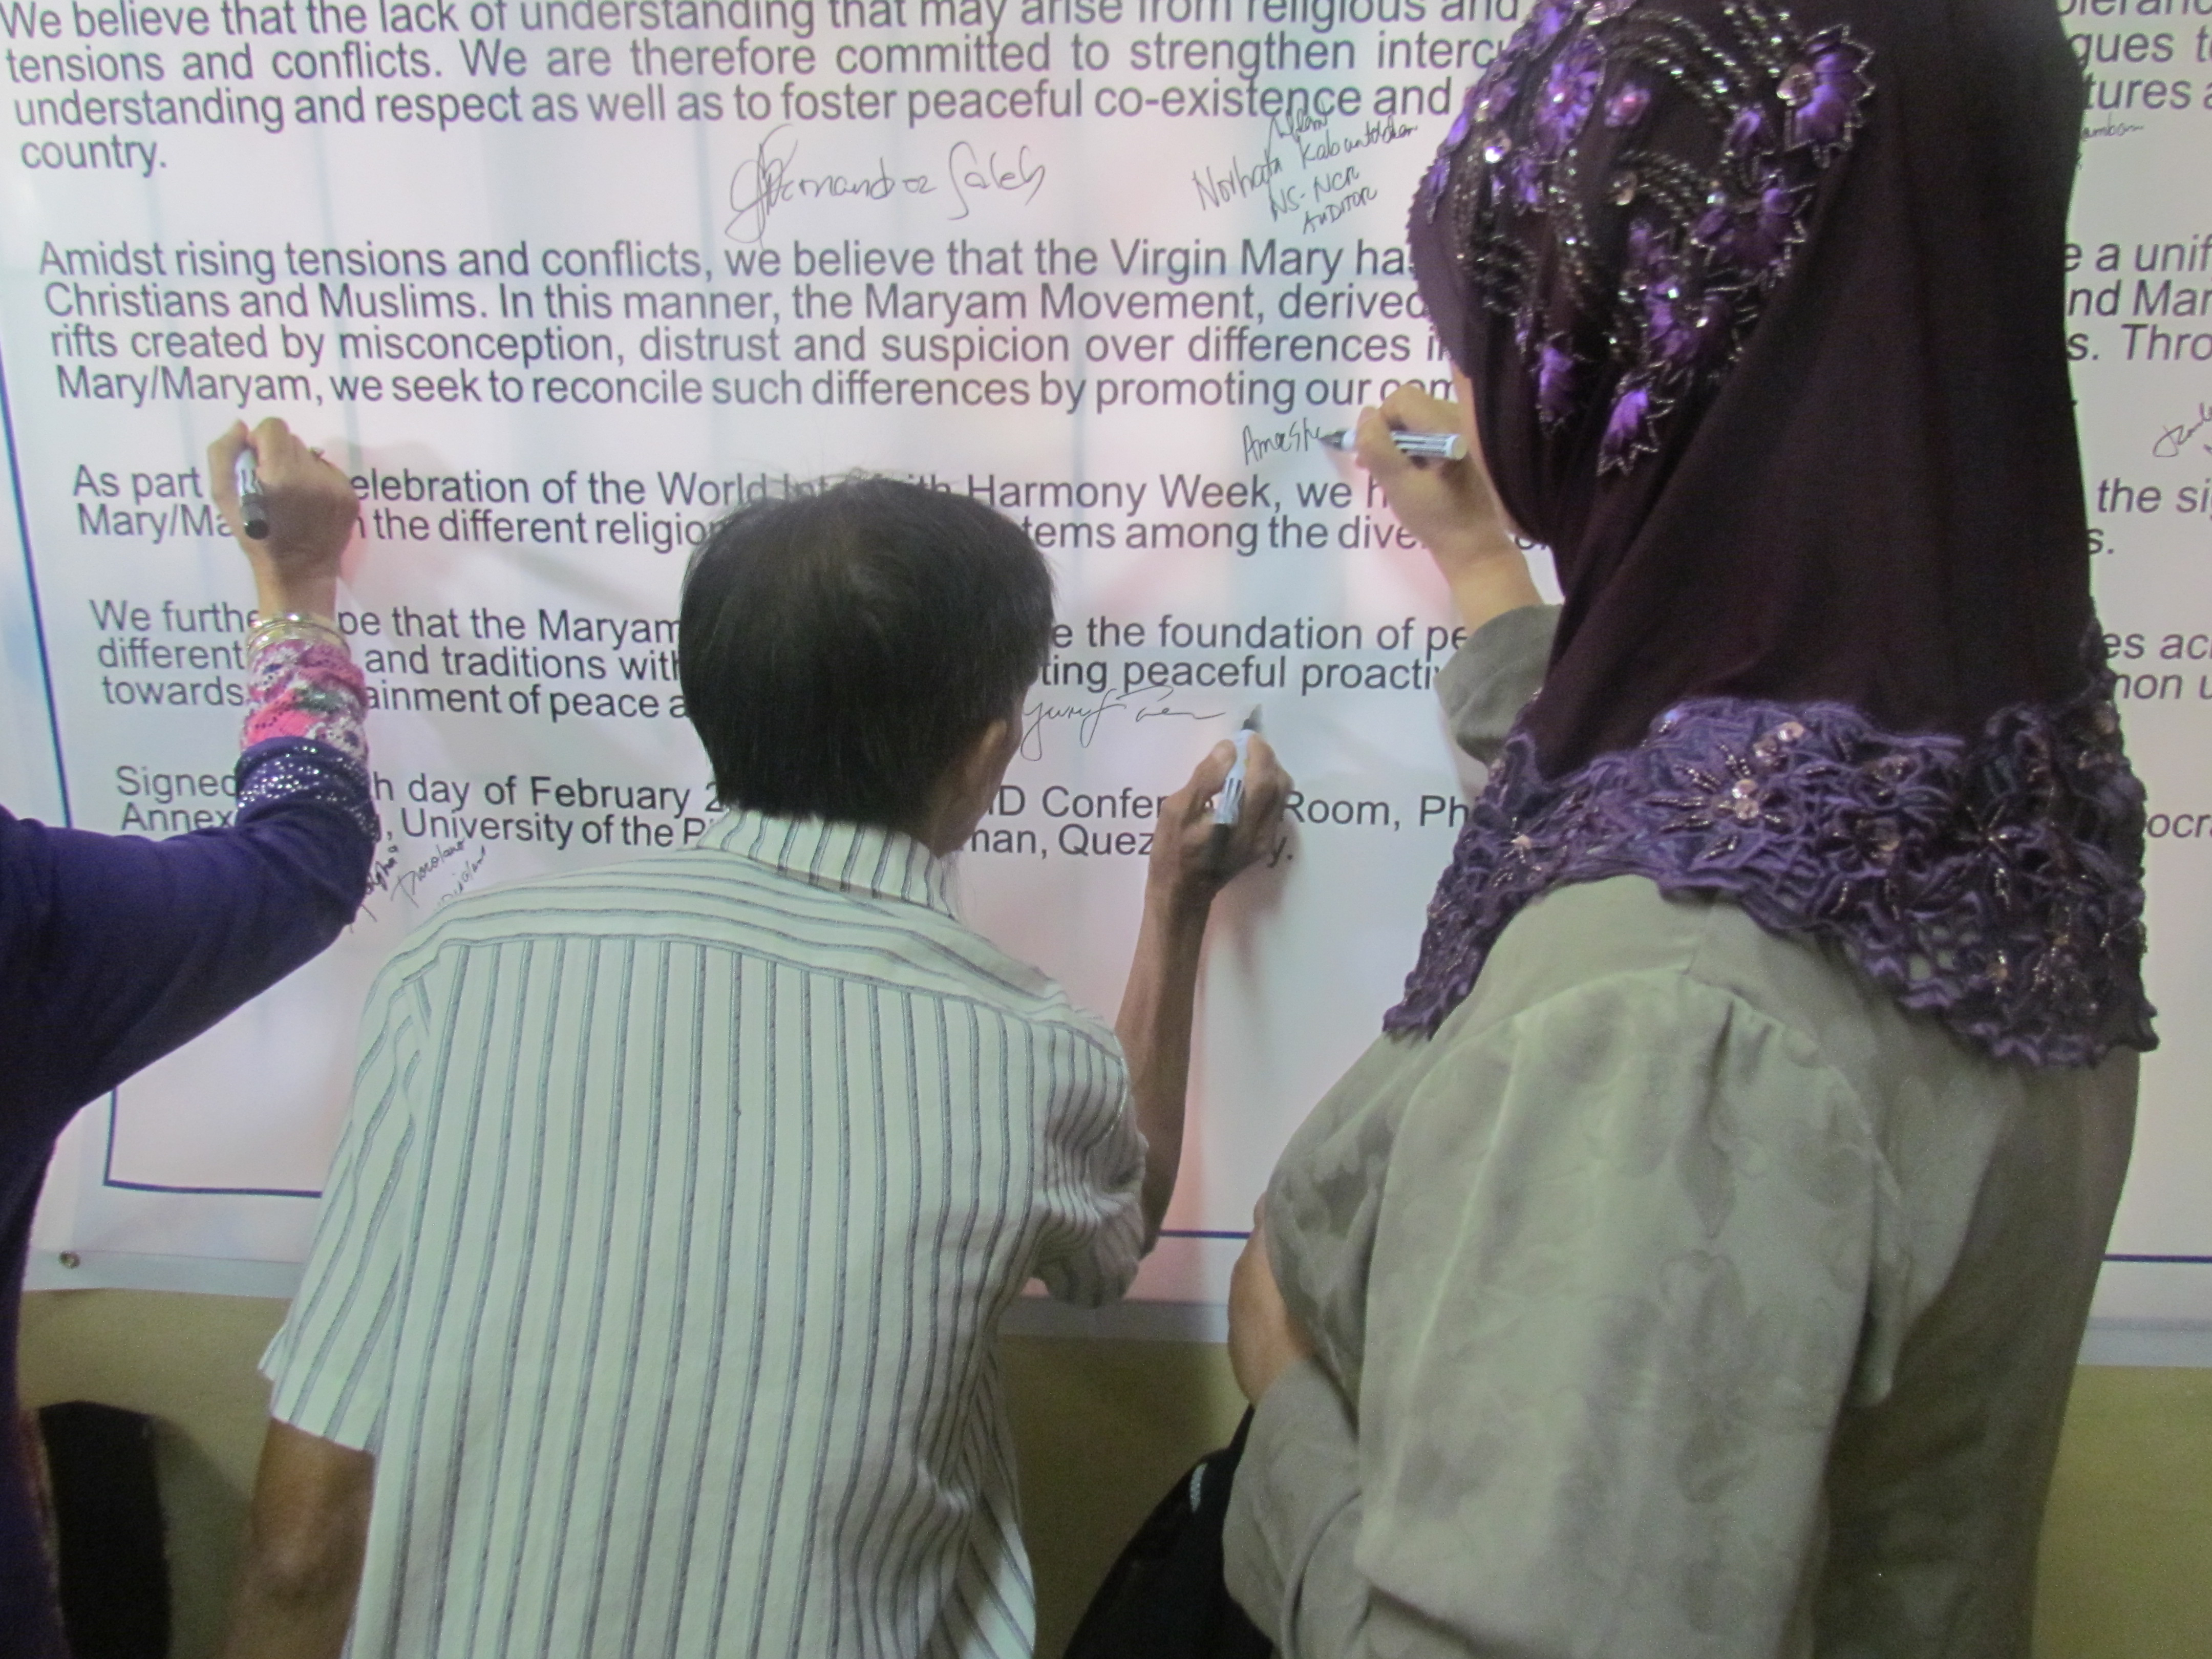 We believe that the lack of understanding that may arise from religious and
tensions and conflicts. We are therefore committed to strengthen interc gues t
understanding and respect as well as to foster peaceful co-existence and tures a
country.
Fernandez Saleh
Norhata Kabuntalan
NS-NCR
AUDITOR
Amidst rising tensions and conflicts, we believe that the Virgin Mary ha e a unif
Christians and Muslims. In this manner, the Maryam Movement, derived nd Mar
rifts created by misconception, distrust and suspicion over differences i s. Thro
Mary/Maryam, we seek to reconcile such differences by promoting our com
As part elebration of the World Interfaith Harmony Week, we h the si
Mary/Ma n the different religio tems among the dive s.
We furthe pe that the Maryam e the foundation of pe es ac
different and traditions with ting peaceful proacti mon u
towards ainment of peace a
Signed h day of February 2 D Confer Room, Ph ocra
Annex , University of the P man, Quez y.